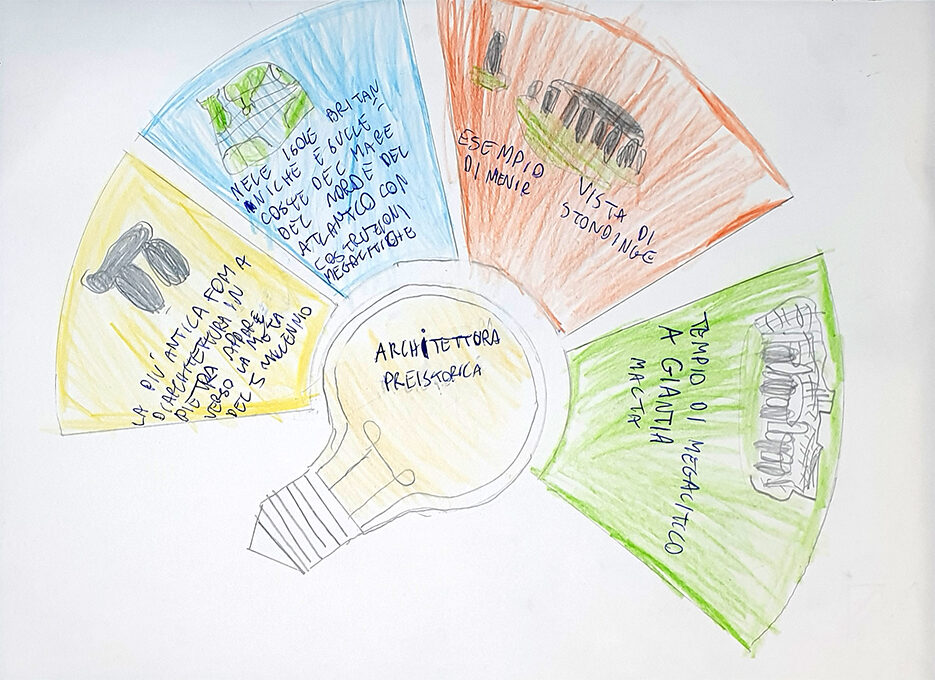 ARCHITETTURA
PREISTORICA
LA PIÚ ANTICA FOMA
DI ARCHITETTURA IN
PIETRA APPARE
VERSO LA METÀ
DEL 5 MILLENNIO
NELE ISOLE BRITAN
NICHE E SULLE
COSTE DEL MARE
DEL NORD E DEL
ATLANTICO CON
COSTRUZIONI
MEGALITICHE
ESEMPIO
DI MENIR
VISTA DI
STONDINGE
TEMPIO DI MEGALITCO
A GIANTIA
MALTA